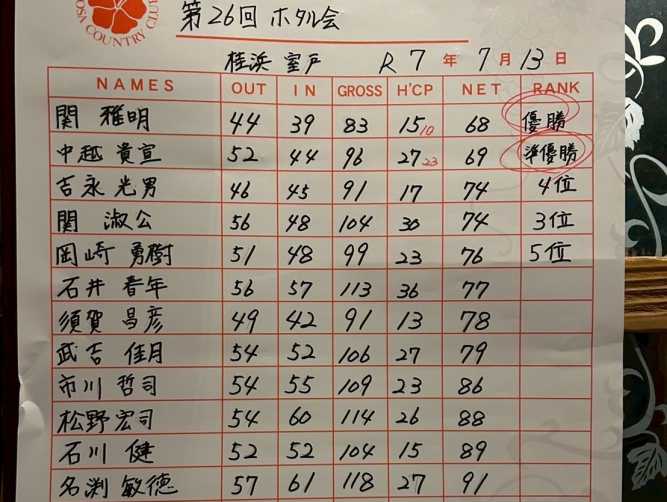 OSA COUNTRY CLUB
第26回 ホタル会
桂浜 室戸 R7年7月13日
NAMES OUT IN GROSS H'CP NET RANK
関 雅明 44 39 83 15 10 68 優勝
中越 貴宣 52 44 96 27 23 69 準優勝
吉永 光男 46 45 91 17 74 4位
関 淑公 56 48 104 30 74 3位
岡崎 勇樹 51 48 99 23 76 5位
石井 春年 56 57 113 36 77
須賀 昌彦 49 42 91 13 78
武吉 佳月 54 52 106 27 79
市川 哲司 54 55 109 23 86
松野 宏司 54 60 114 26 88
石川 健 52 52 104 15 89
名渕 敏徳 57 61 118 27 91